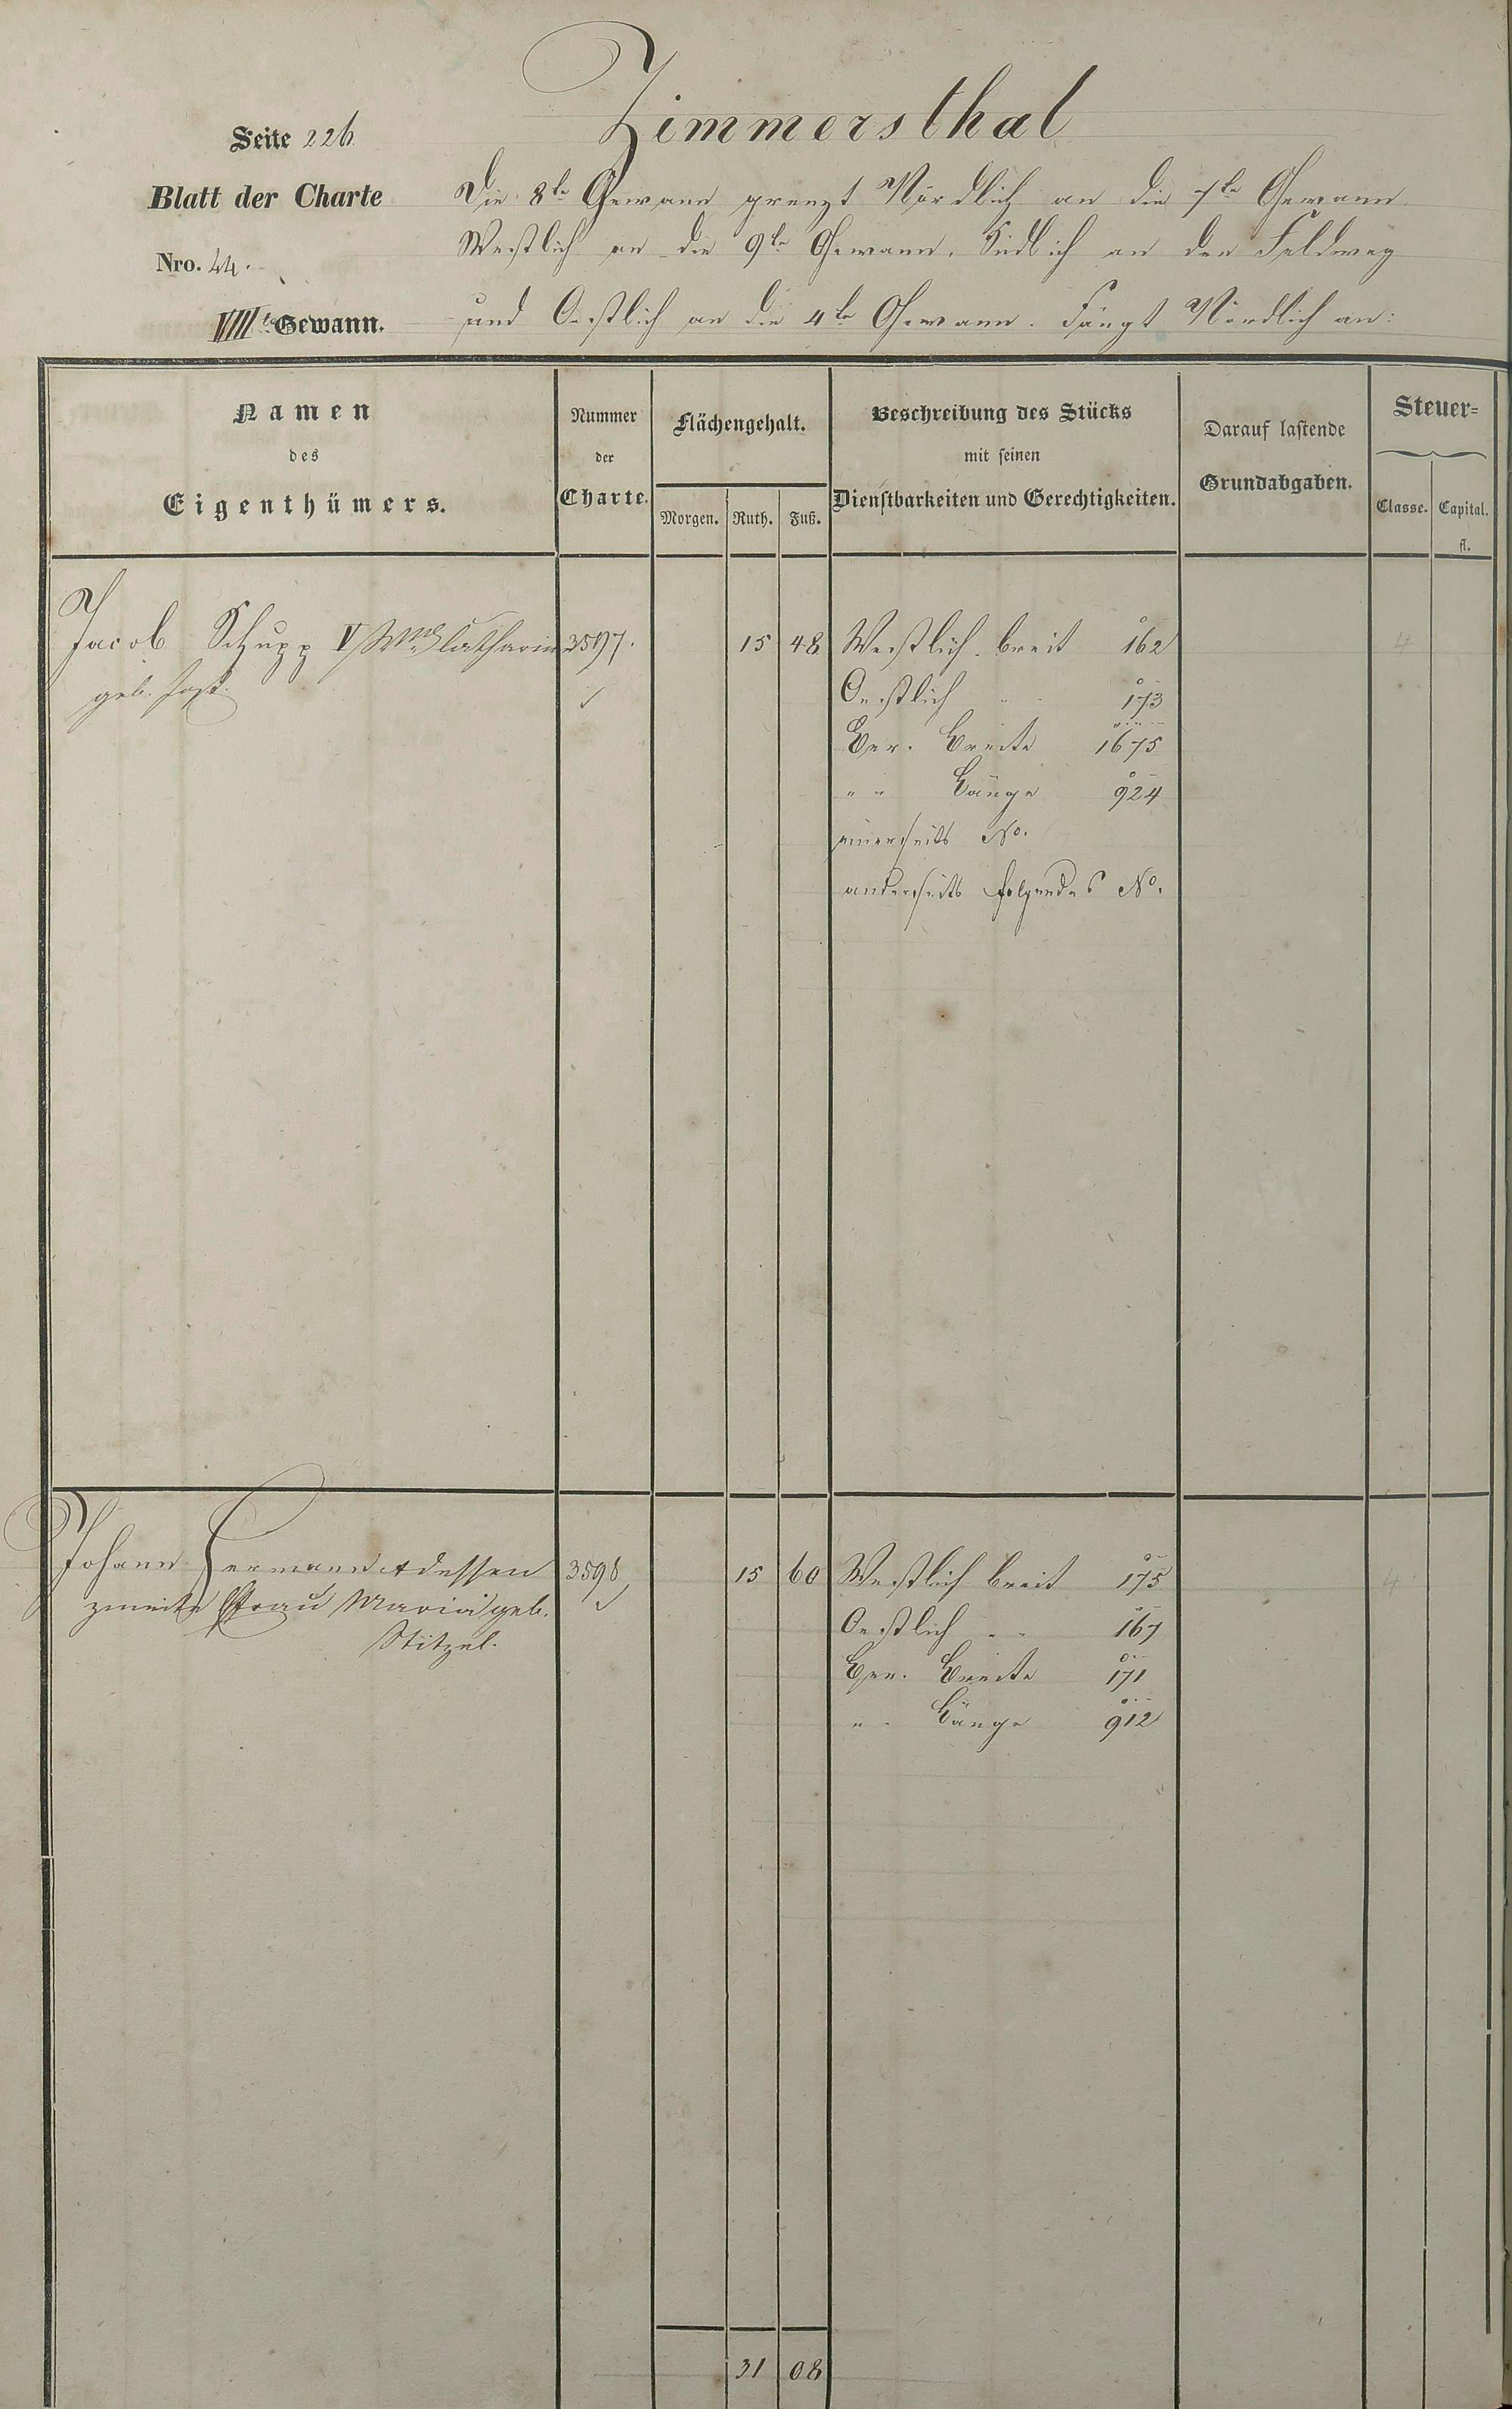 Zimmersthal
Seite 226
Blatt der Charte
Nro. 44.
VIIIte Gewann.
Die 8te Gewann grenzt Nördlich an die 7te Gewann
Westlich an die 9te Gewann, Südlich an den Feldweg
und Oestlich an die 4te Gewann. Fängt Nördlich an:
Namen
des
Eigenthümers.
Nummer
der
Charte.
Flächengehalt.
Morgen. Ruth. Fuß.
Beschreibung des Stücks
mit seinen
Dienstbarkeiten und Gerechtigkeiten.
Darauf lastende
Grundabgaben.
Steuer=
Classe. Capital.
fl.
Jacob Schupp V Catharin 3597. 15 48 Westlich breit 162 4
geb. Jost. Oestlich " " 173
Ber. Breite 1675
" " Länge 924
einerseits No.
anderseits folgendes No.
Johann Hermann dessen 3598 15 60 Westlich breit 175 4
zweite Frau Maria geb. Oestlich " " 167
Stitzel. Ber. Breite 171
" " Länge 912
31 08